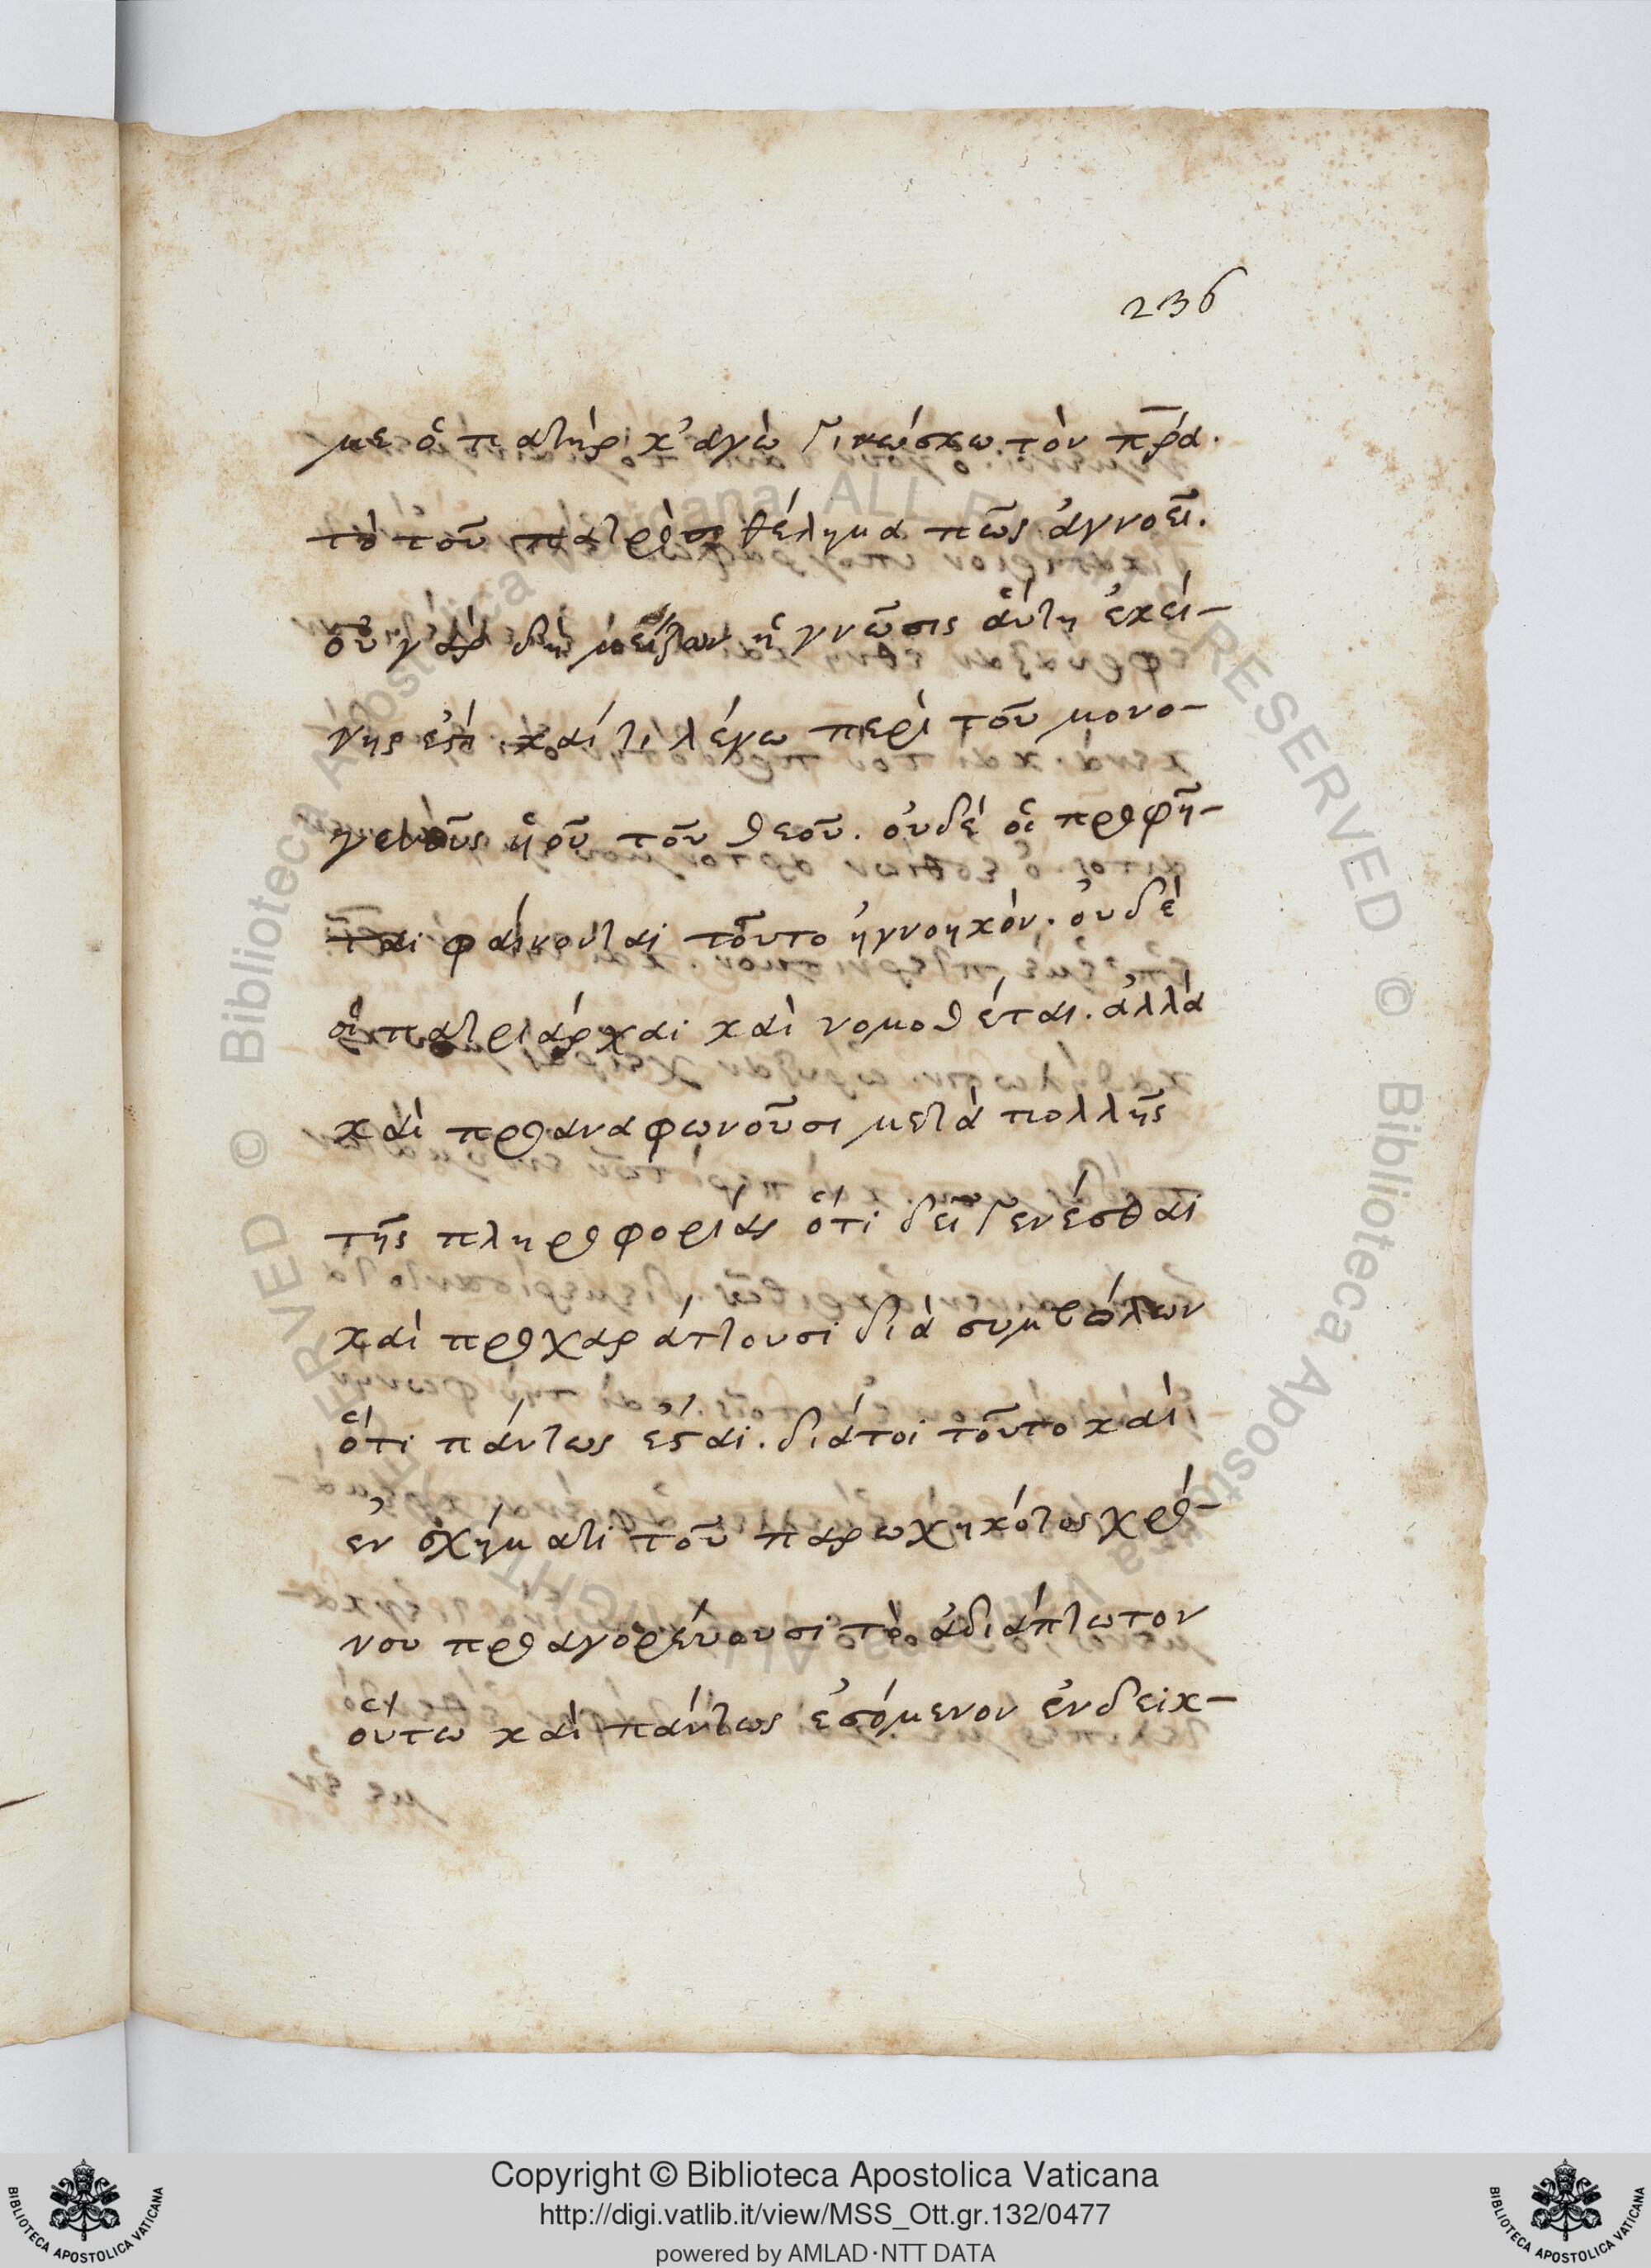 236
με ὁ πατὴρ κ’αγὼ γινώσκω τὸν πρ̅α.
τὸ τοῦ πατρὸς θέλημα πῶς ἀγνοεῖ.
οὐ γὰρ δὴ μείζων ἡ γνῶσις αὕτη ἐκεί-
νης ἐστὶ καί τι λέγω περὶ τοῦ μονο-
γενοῦς ἡοῦ τοῦ θεοῦ. οὐδὲ οἱ προφῆ-
ται φαίνονται τοῦτο ἠγνοηκόν. οὐδὲ
οἱ πατριάρχαι καὶ νομοθέται. ἀλλὰ
καὶ προαναφωνοῦσι μετὰ πολλῆς
τῆς πληροφορίας ὅτι δεῖ γενέσθαι
καὶ προχαράττουσι διὰ συμβόλων
ὅτι πάντως ἔσται. διάτοι τοῦτο καὶ
ἐν σχήματι τοῦ παρωχηκότος χρό-
νου προαγορεύουσι τὸ ἀδιάπτωτον
οὕτω καὶ πάντως ἐσόμενον ἐνδεικ-
© Biblioteca Apostolica Vaticana ALL RIGHTS RESERVED
Copyright © Biblioteca Apostolica Vaticana
http://digi.vatlib.it/view/MSS_Ott.gr.132/0477
powered by AMLAD·NTT DATA
BIBLIOTECA APOSTOLICA VATICANA
BIBLIOTECA APOSTOLICA VATICANA